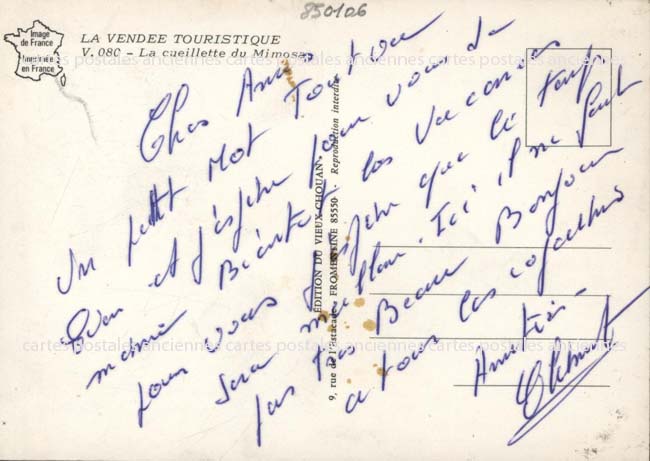 850106
Image
de France
Imprimée
en France
LA VENDEE TOURISTIQUE
V. 080 - La cueillette du Mimosa
cartes postales anciennes cartes postales anciennes cartes postales anciennes
Chers Amis
Un petit Mot Tout va
Bien et j'espère pour vous de
même Bientôt les Vacances
pour vous j'espère que le temps
sera meilleur. Ici il ne fait
pas très Beau Bonjour
a tous les
Amitiés
EDITION DU VIEUX CHOUAN
9, rue de l'Estacade - FROMENTINE 85550 - Reproduction interdite
cartes postales anciennes cartes postales anciennes cartes postales anciennes